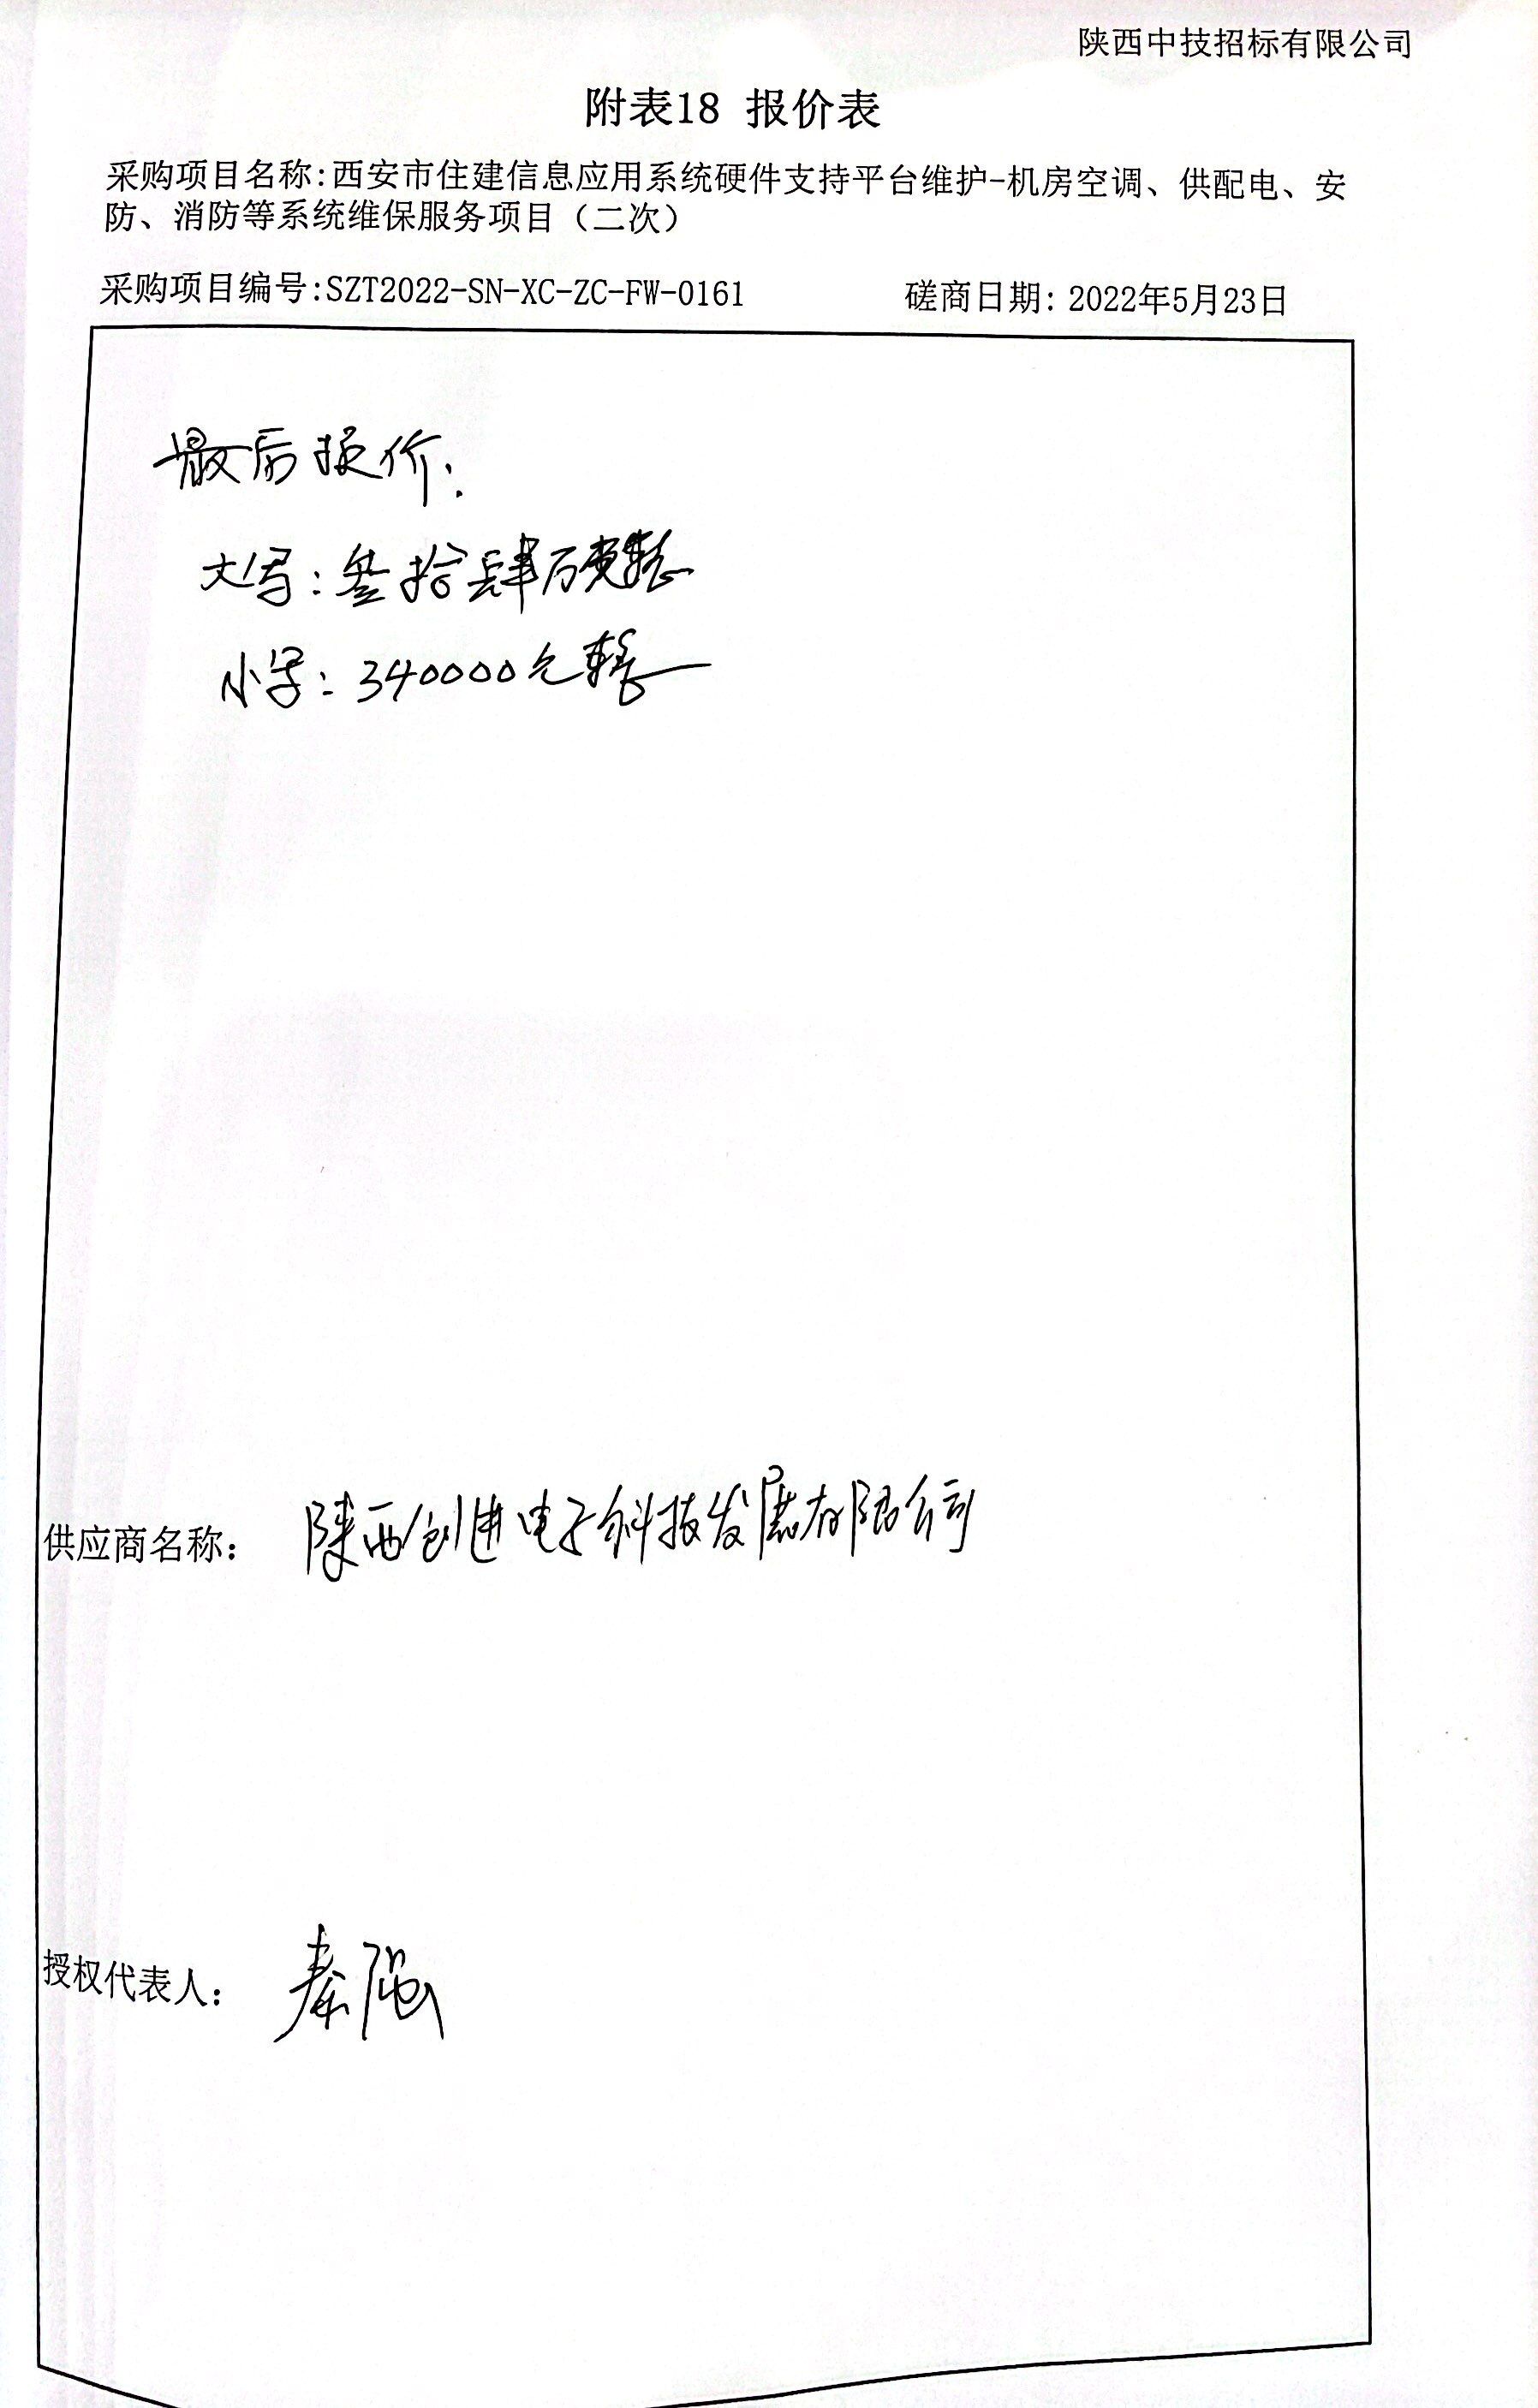 陕西中技招标有限公司
附表18 报价表
采购项目名称:西安市住建信息应用系统硬件支持平台维护-机房空调、供配电、安
防、消防等系统维保服务项目（二次）
采购项目编号:SZT2022-SN-XC-ZC-FW-0161 磋商日期: 2022年5月23日
最后报价:
大写:叁拾肆万元整
小写:340000元整
供应商名称: 陕西创进电子科技发展有限公司
授权代表人: 秦强